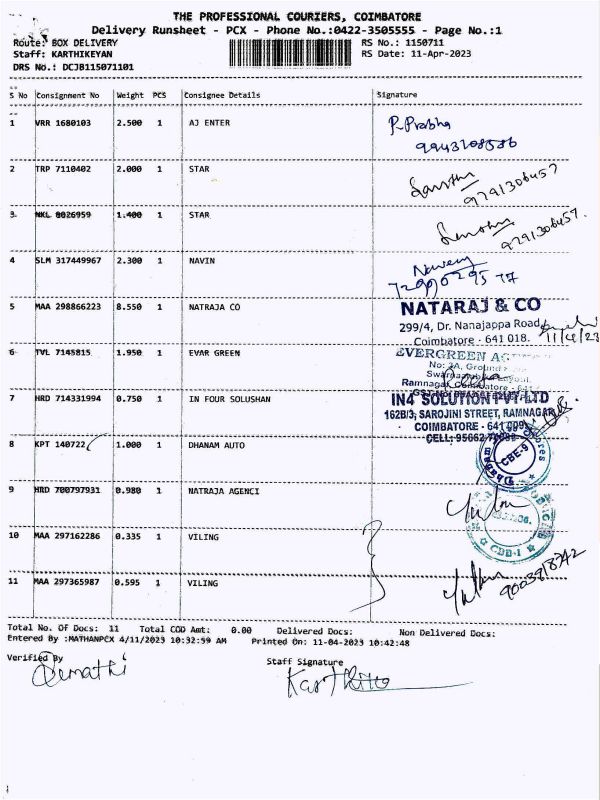 THE PROFESSIONAL COURIERS, COIMBATORE
Delivery Runsheet - PCX - Phone No.:0422-3505555 - Page No.:1
Route: BOX DELIVERY RS No.: 1150711
Staff: KARTHIKEYAN RS Date: 11-Apr-2023
DRS No.: DCJB115071101
S No Consignment No Weight PCS Consignee Details Signature
1 VRR 1680103 2.500 1 AJ ENTER P. Prabha
9943708586
2 TRP 7110402 2.000 1 STAR
9791306457
3 NKL 8026959 1.400 1 STAR
9791306457.
4 SLM 317449967 2.300 1 NAVIN Naveen
5 MAA 298866223 8.550 1 NATRAJA CO NATARAJ & CO
299/4, Dr. Nanajappa Road,
Coimbatore - 641 018. 11/4/23
6 TVL 7145815 1.950 1 EVAR GREEN EVERGREEN
No: 3A, Ground
Ramnagar, Coimbatore
7 HRD 714331994 0.750 1 IN FOUR SOLUSHAN IN4 SOLUTION PVT LTD
162B/3, SAROJINI STREET, RAMNAGAR,
COIMBATORE - 641 009.
8 KPT 140722 1.000 1 DHANAM AUTO CELL: 95662
CBE-9
9 HRD 700797931 0.980 1 NATRAJA AGENCI
10 MAA 297162286 0.335 1 VILING
CBD-1
11 MAA 297365987 0.595 1 VILING 9003818742
Total No. Of Docs: 11 Total COD Amt: 0.00 Delivered Docs: Non Delivered Docs:
Entered By :MATHANPCX 4/11/2023 10:32:59 AM Printed On: 11-04-2023 10:42:48
Verified By Staff Signature